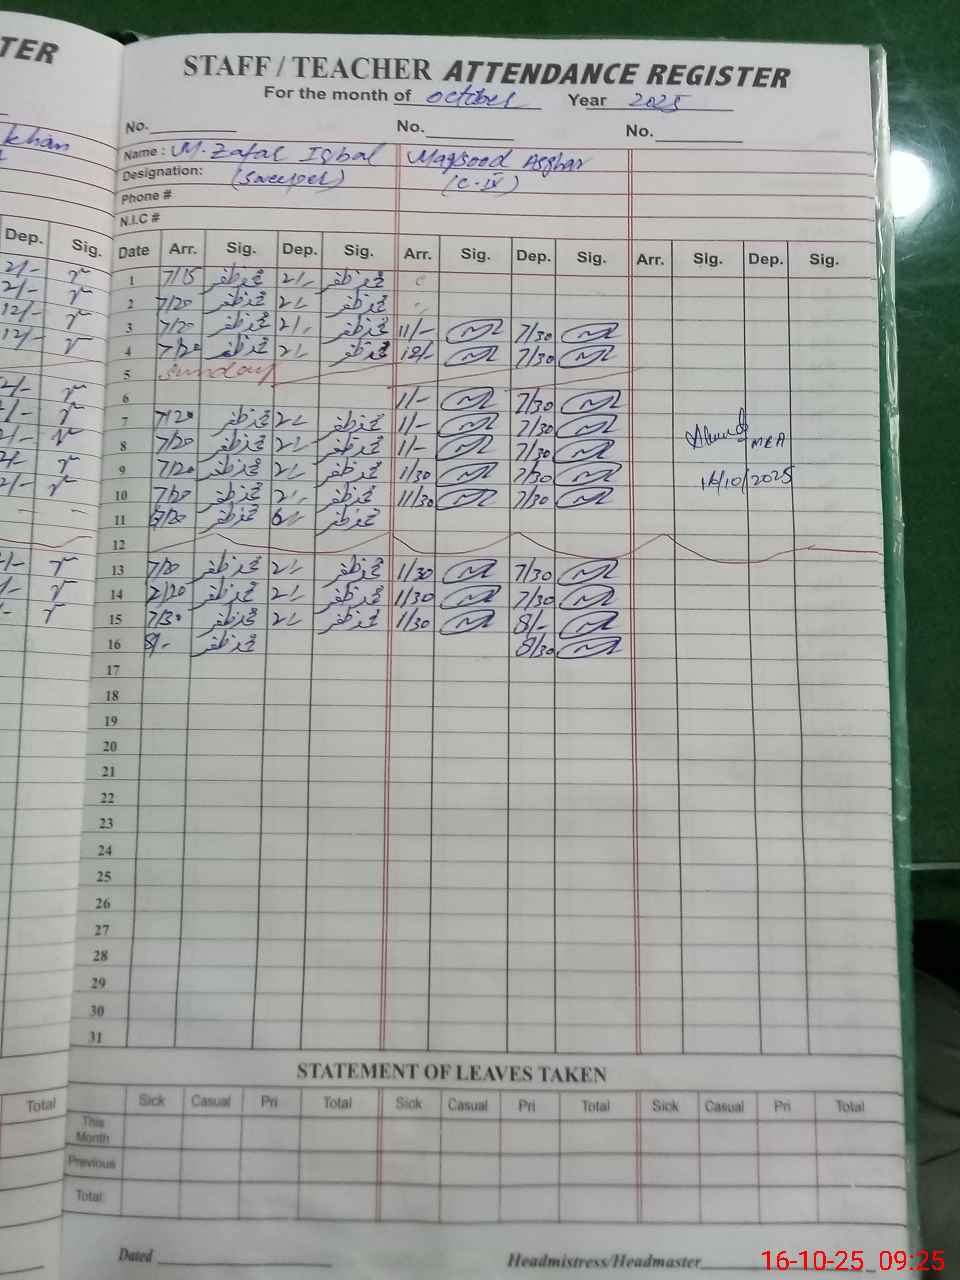 TER
STAFF / TEACHER ATTENDANCE REGISTER
For the month of October Year 2025
No. No. No.
khan
Name : M. Zafar Iqbal Maqsood Asghar
Designation: (Sweeper) (C-IV)
Phone #
N.I.C #
Dep. Sig. Date Arr. Sig. Dep. Sig. Arr. Sig. Dep. Sig. Arr. Sig. Dep. Sig.
2/- 1 7/15 محمد ظفر 2/- محمد ظفر
2/- 2 7/20 محمد ظفر 2/- محمد ظفر
12/- 3 7/20 محمد ظفر 2/- محمد ظفر 11/- 7/30
12/- 4 7/20 محمد ظفر 2/- محمد ظفر 12/- 7/30
5 Sunday
2/- 6 11/- 7/30
2/- 7 7/20 محمد ظفر 2/- محمد ظفر 11/- 7/30
2/- 8 7/20 محمد ظفر 2/- محمد ظفر 11/- 7/30 MEA
2/- 9 7/20 محمد ظفر 2/- محمد ظفر 1/30 7/30 16/10/2025
2/- 10 7/20 محمد ظفر 2/- محمد ظفر 11/30 7/30
11 محمد ظفر محمد ظفر
12
13 7/20 محمد ظفر 2/- محمد ظفر 1/30 7/30
14 7/20 محمد ظفر 2/- محمد ظفر 1/30 7/30
15 7/30 محمد ظفر 2/- محمد ظفر 1/30 8/-
16 8/- محمد ظفر 8/30
17
18
19
20
21
22
23
24
25
26
27
28
29
30
31
STATEMENT OF LEAVES TAKEN
Total Sick Casual Pri Total Sick Casual Pri Total Sick Casual Pri Total
This
Month
Previous
Total:
Dated Headmistress/Headmaster
16-10-25 09:25